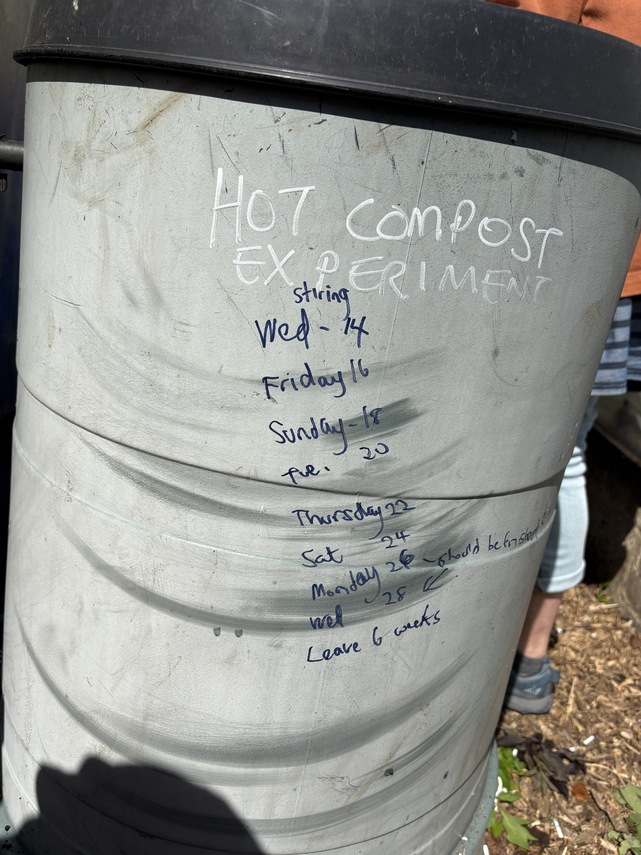 HOT COMPOST
EXPERIMENT
stiring
Wed - 14
Friday 16
Sunday - 18
Tue. 20
Thursday 22
Sat 24
Monday 26 - should be finished
Wed - 28
Leave 6 weeks